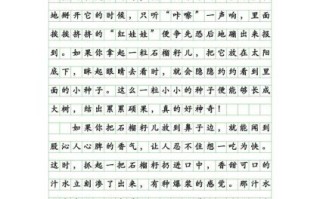 地掰开它的时候，只听“咔嚓”一声响，里面
挨挨挤挤的“红娃娃”便争先恐后地蹦出来报
到。如果你拿起一粒石榴籽儿，把它放在太阳
底下，眯起眼睛去看时，就会隐隐约约看到里
面的小种子。这么一个小小的种子便能够长成
大树，结出累累硕果，真的好神奇！
如果你把石榴籽儿放到鼻子边，就能闻到
股沁人心脾的香气，让人忍不住想一吃为快。
这时，抓起一把石榴籽扔进口中，香甜可口的
汁水立刻渗了出来，有种爆装的感觉。那汁水